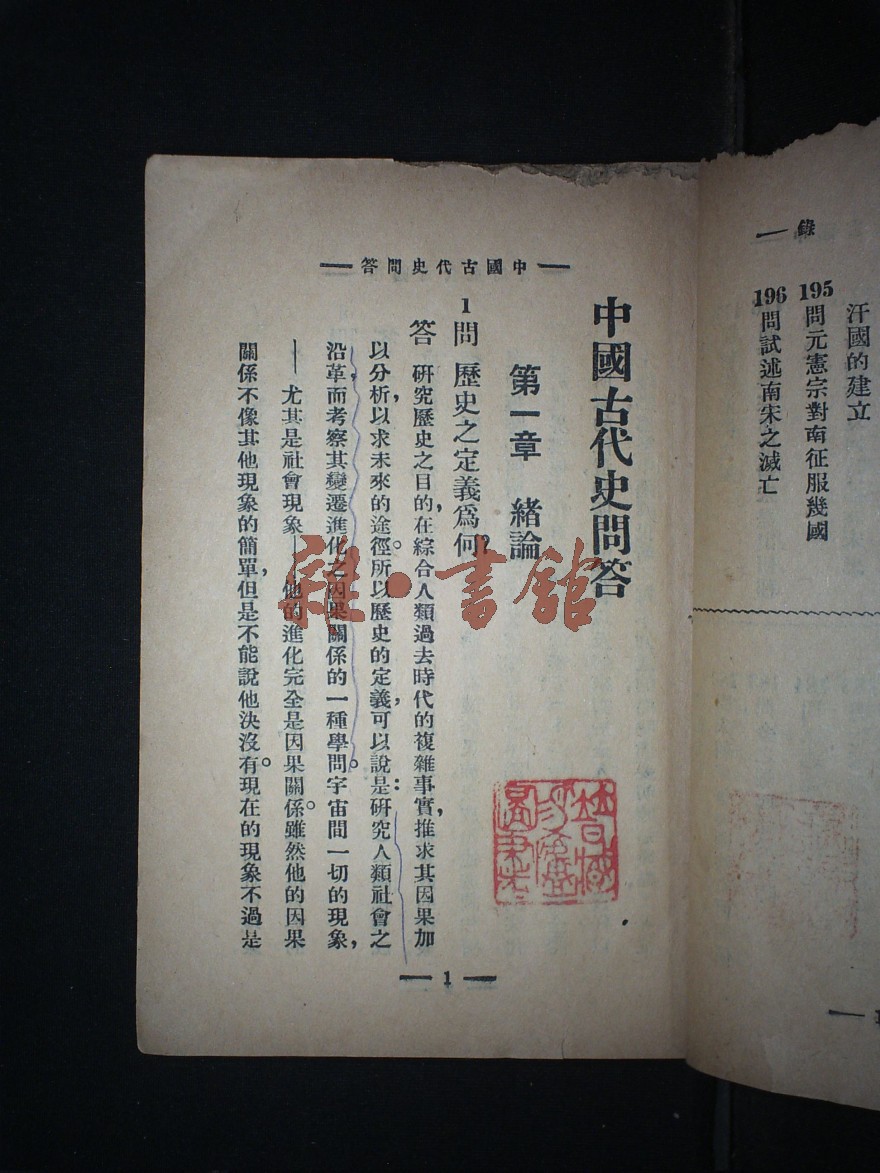 錄
汗國的建立
195問元憲宗對南征服幾國
196問試述南宋之滅亡
中國古代史問答
中國古代史問答
第一章 緒論
1問 歷史之定義爲何?
答 研究歷史之目的,在綜合人類過去時代的複雜事實,推求其因果加
以分析,以求未來的途徑。所以歷史的定義,可以說是:研究人類社會之
沿革,而考察其變遷進化之因果關係的一種學問。宇宙間一切的現象,
——尤其是社會現象——他的進化完全是因果關係。雖然他的因果
關係不像其他現象的簡單,但是不能說他決沒有。現在的現象不過是
1
雜·書館